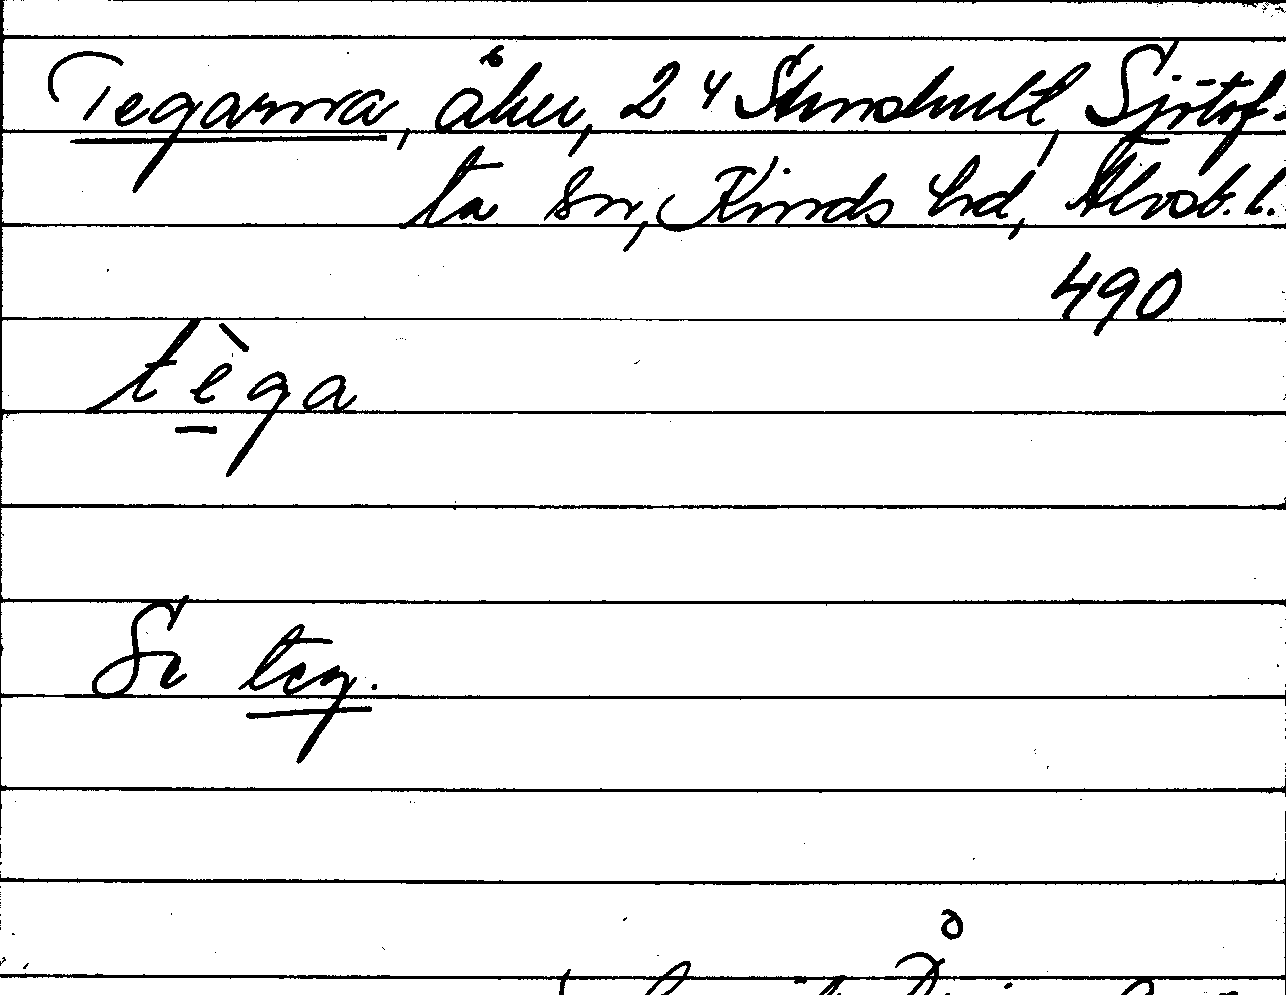 Tegarna, åker, 2 4 Stenshult, Sjötof-
ta sn, Kinds hd, Älvsb. l.
490
tèga
Se teg.